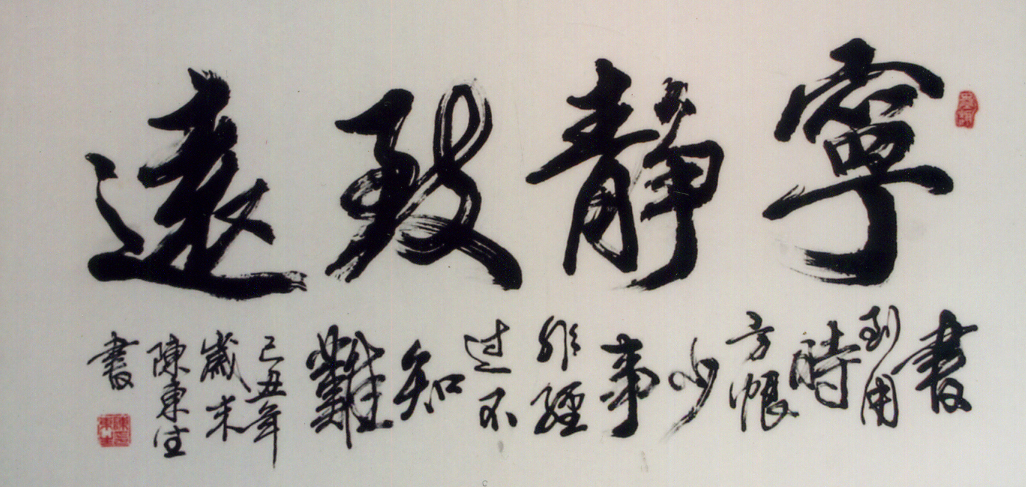 寧靜致遠
書到用時方恨少事非經過不知難
己丑年歲末陳東生書